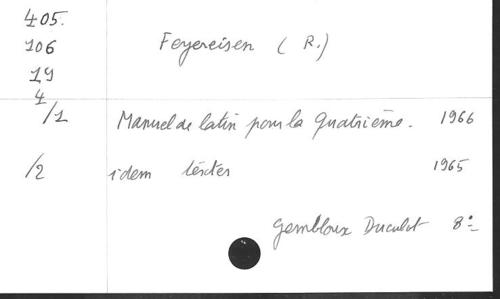 405.
106 Feyereisen ( R. )
19
4
/1 Manuel de latin pour la Quatrième. 1966
/2 idem textes 1965
Gembloux Duculot 8º